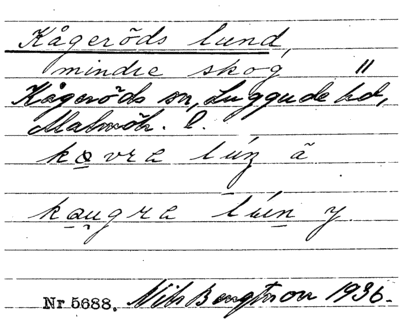 Kågeröds lund,
mindre skog "
Kågeröds sn, Luggude hd,
Malmöh. l.
kǫvra lúṉ ā
kou̯gra lúen y.
Nr 5688. Nils Bengtsson 1936.